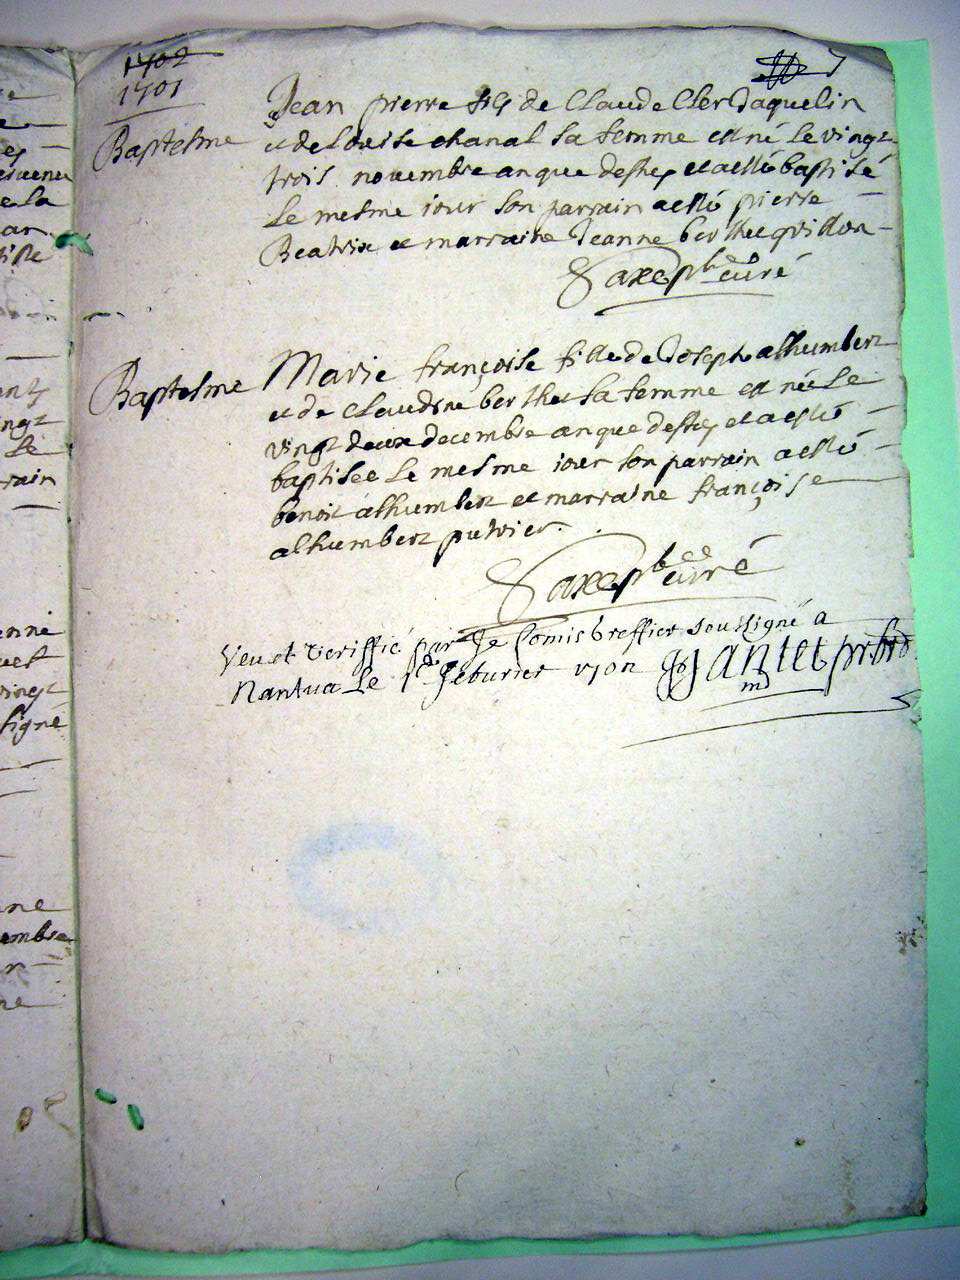 1702
1701
7
Baptesme
Jean pierre fils de Claude Clerc Jaquelin
et de Loüise chanal sa femme est né le vingt
trois novembre an que dessus et a esté baptisé
Le mesme iour son parrain a esté pierre
Beatrix et marraine Jeanne berthet quillon
Saxe pbre curé
Baptesme
Marie françoise fille de Joseph alhumbert
et de Claudine berthet sa femme est née le
vingt deux decembre an que dessus et a esté
baptisée Le mesme iour son parrain a esté
benoit alhumbert et marraine françoise
alhumbert
Saxe pbre curé
Veu et veriffié par Je Comis Greffier soussigné a
Nantua le febvrier 1702 Jantet
ne
Le
rain
vingt
signé
ne